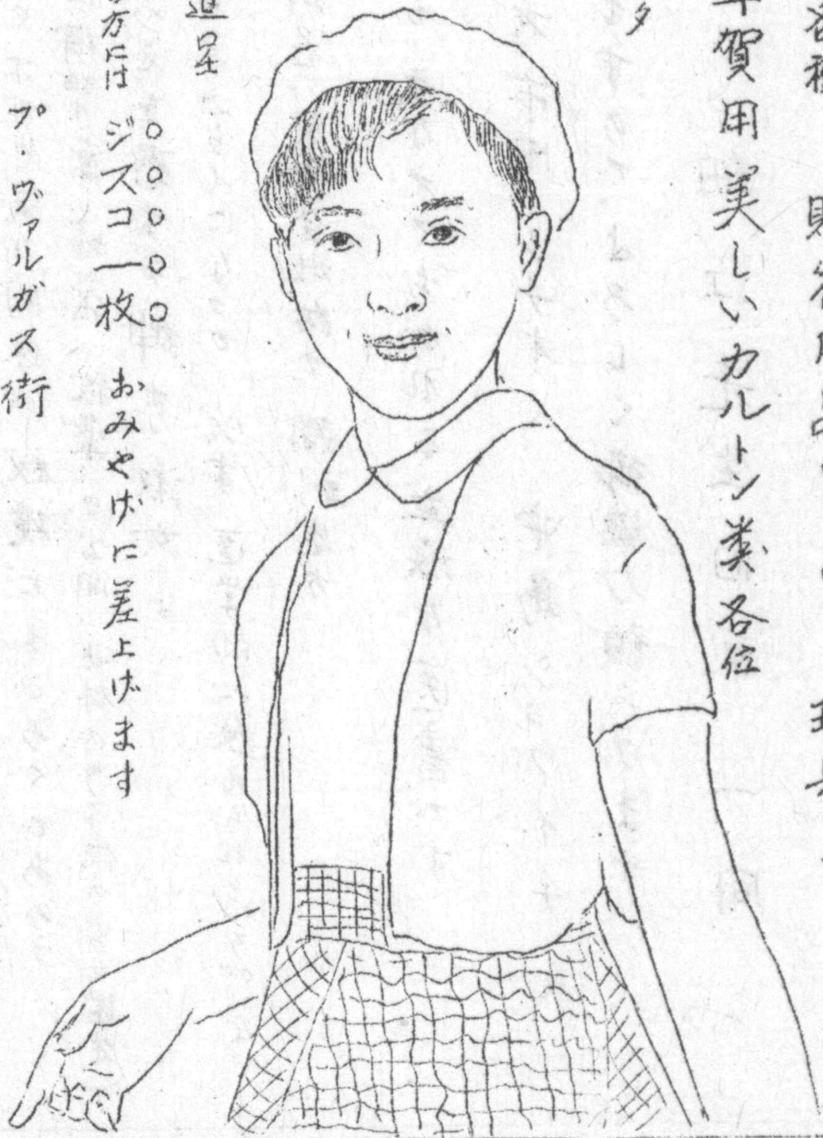 各種
年賀用 美しいカルトン類各位
タ
進呈
方には ジスコ一枚 おみやげに差上げます
プ・ヴァルガス街